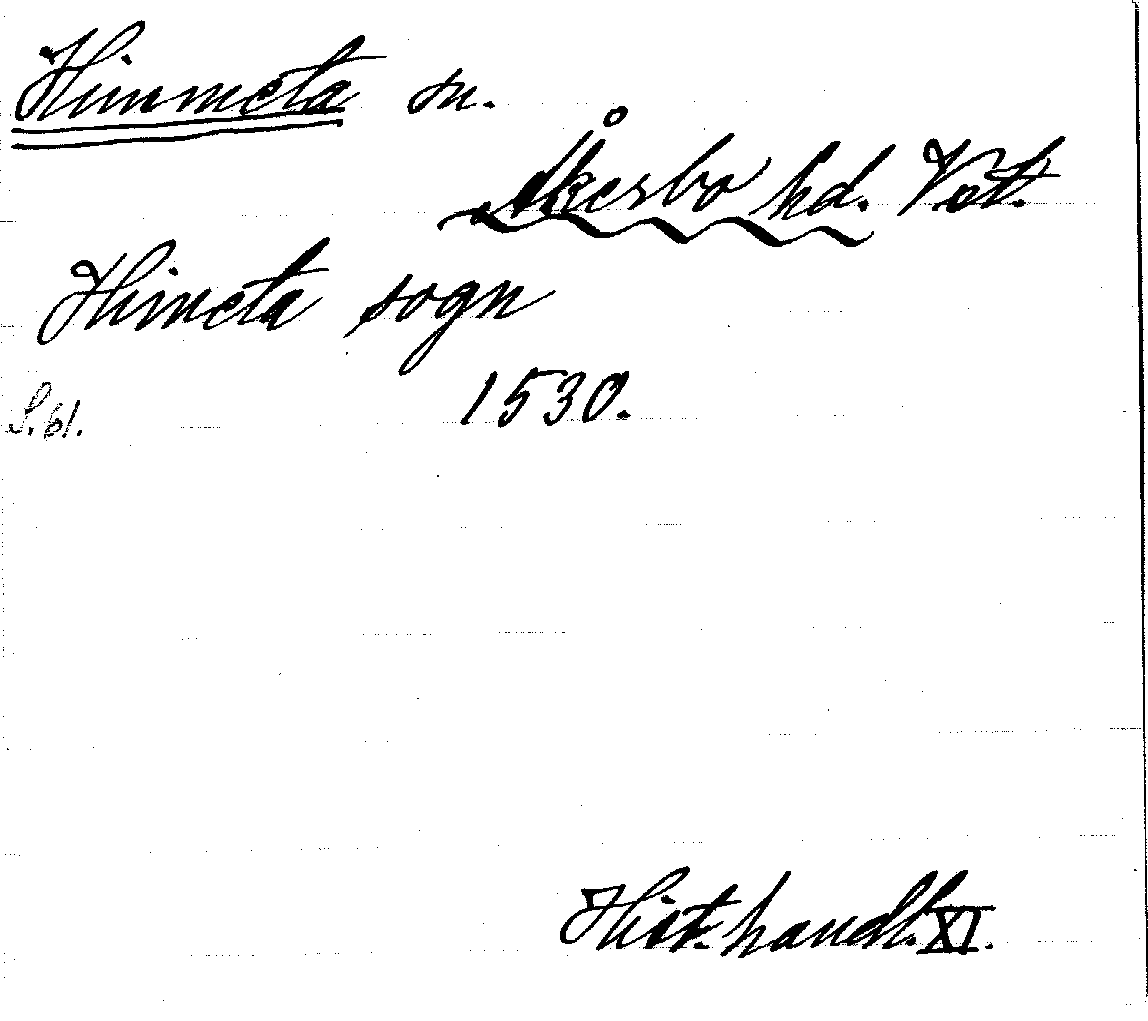 Himmeta sn.
Åkerbo hd. Vstl.
Himeta sogn
1530.
S. 61.
Hist. handl. XI.